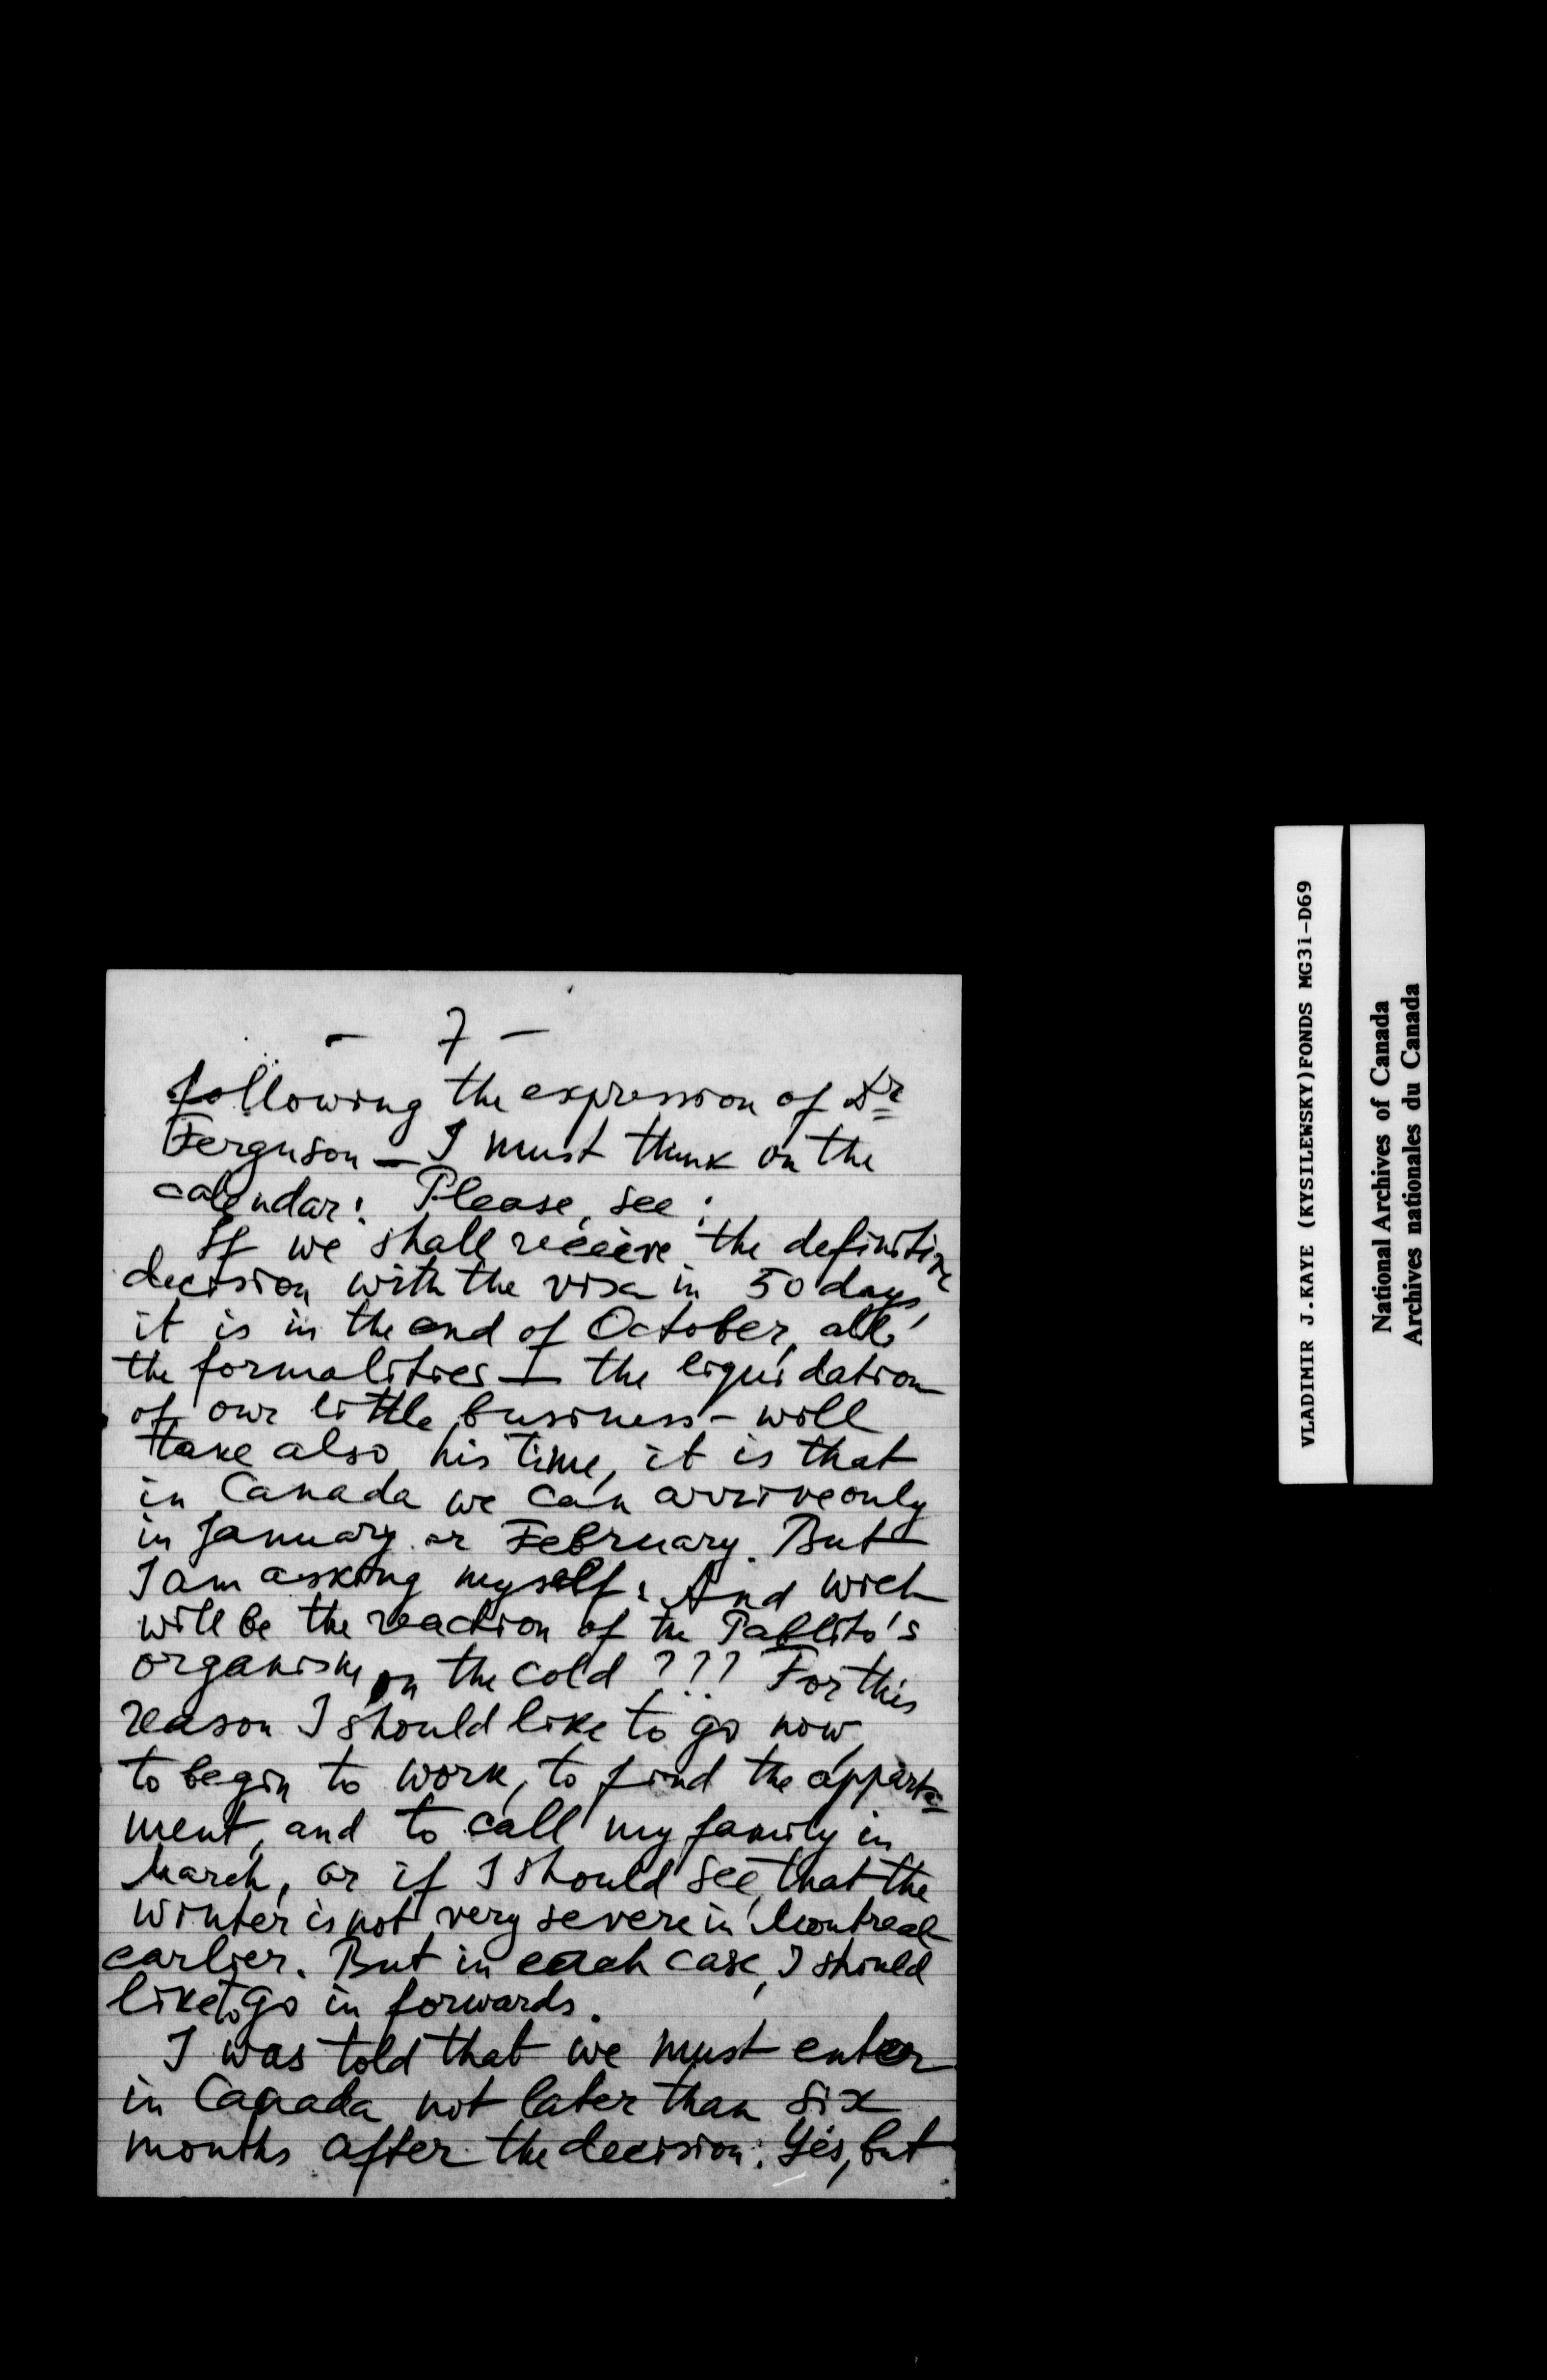 - 7 -
following the expression of Dr
Ferguson — I must think on the
calendar! Please, see:
If we shall receive the definitive
decision with the visa in 50 days,
it is in the end of October, all
the formalities — the liquidation
of our little business - will
take also his time, it is that
in Canada we can arrive only
in January or February. But
I am asking myself: And wich
will be the reaction of the Pablito's
organism on the cold ??? For this
reason I should like to go now,
to begin to work, to find the apparte-
ment, and to call my family in
March, or if I should see, that the
winter is not very severe in Montreal
earlier. But in each case, I should
like to go in forwards.
I was told that we must enter
in Canada not later than six
months after the decision: Yes, but
VLADIMIR J.KAYE (KYSILEWSKY)FONDS MG31-D69
National Archives of Canada
Archives nationales du Canada